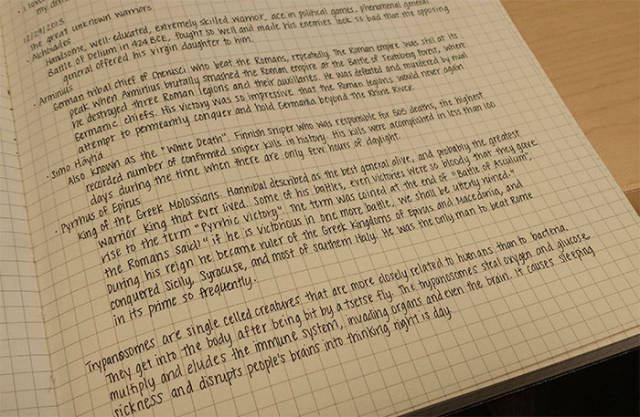 · I love
my de
12/29/2015
The great unknown warriors.
· Alcibiades
Handsome, well-educated, extremely skilled warrior, ace in political games. Phenomenal general
Battle of Delium in 424 BCE, fought so well and made his enemies look so bad that the opposing
general offered his virgin daughter to him.
· Arminius
German tribal chief of Cherusci who beat the Romans, repeatedly. The Roman empire was still at its
peak when Arminius brutally smashed the Roman empire at the Battle of Teutoberg forest, where
he destroyed three Roman legions and their auxiliaries. He was defeated and murdered by rival
Germanic chiefs. His victory was so impressive that the Roman legions would never again
attempt to permeantly conquer and hold Germania beyond the Rhine River.
· Simo Häyhä
Also known as the "White Death". Finnish sniper who was responsible for 505 deaths, the highest
recorded number of confirmed sniper kills in history. His kills were accomplished in less than 100
days during the time when there are only few hours of daylight.
· Pyrrhus of Epirus
King of the Greek Molossians. Hannibal described as the best general alive, and probably the greatest
warrior king that ever lived. Some of his battles, even victories were so bloody that they gave
rise to the term "Pyrrhic victory". The term was coined at the end of "Battle of Asculum",
the Romans said "if he is victorious in one more battle, we shall be utterly ruined."
During his reign he became ruler of the Greek Kingdoms of Epirus and Macedonia, and
conquered Sicily, Syracuse, and most of southern Italy. He was the only man to beat Rome
in its prime so frequently.
Trypanosomes are single celled creatures that are more closely related to humans than to bacteria.
They get into the body after being bit by a tsetse fly. The trypanosomes steal oxygen and glucose
multiply and eludes the immune system, invading organs and even the brain. It causes sleeping
sickness and disrupts people's brains into thinking night is day.